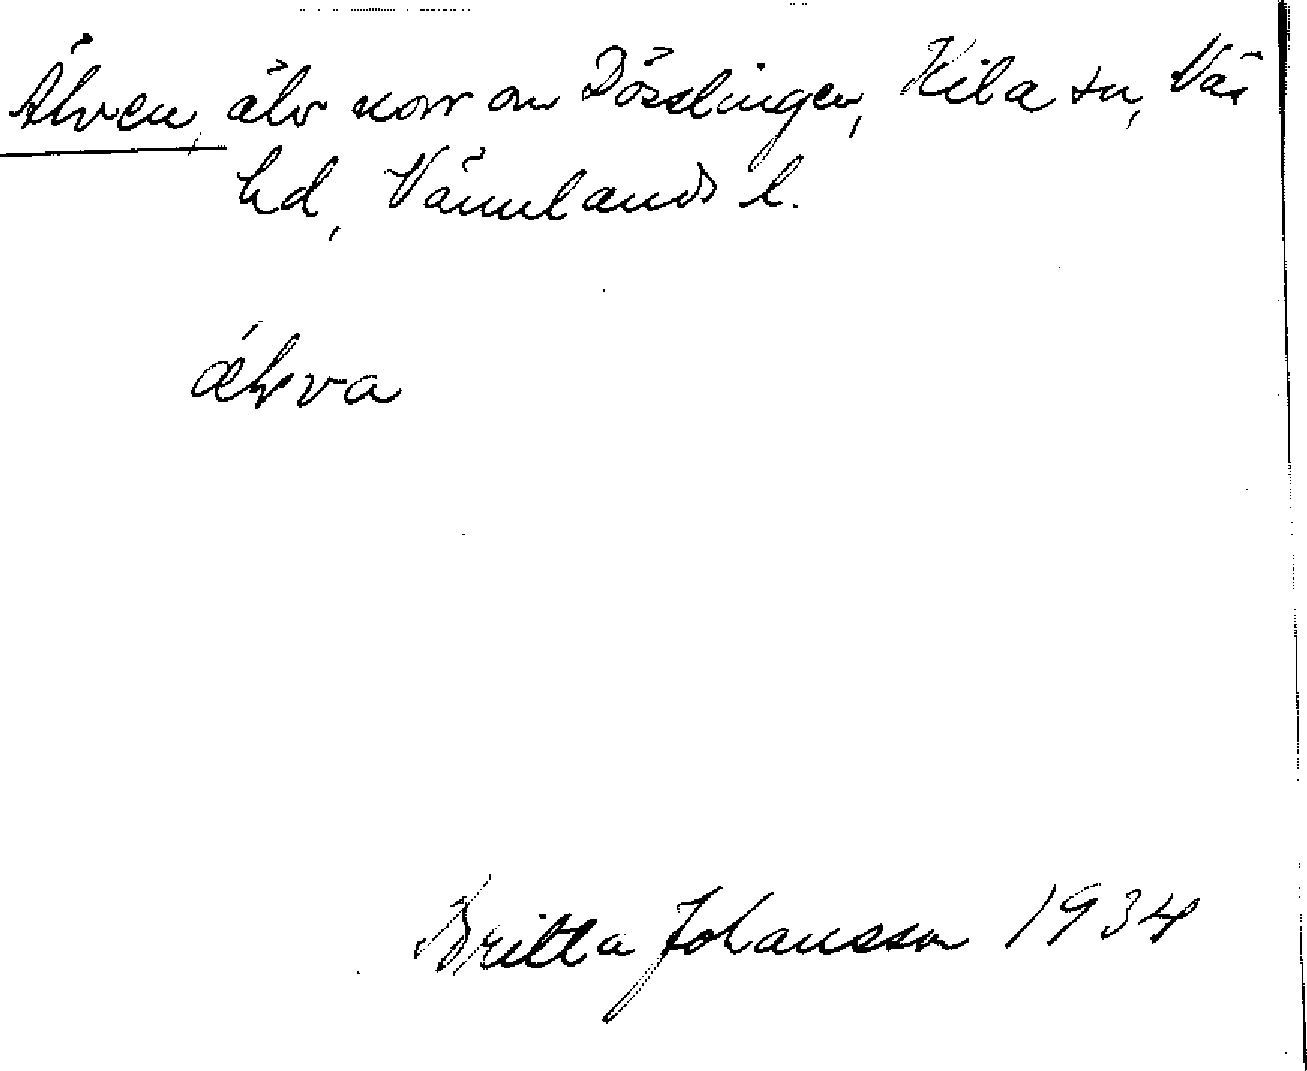 Älven, älv norr om Dösslingen, Kila sn, Näs
hd, Värmlands l.
ǽlva
Britta Johansson 1934